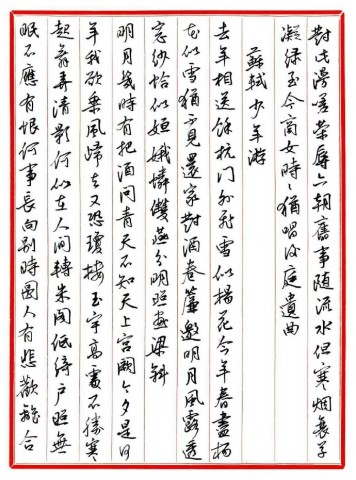 對此漫嗟榮辱六朝舊事隨流水但寒烟衰草
凝绿至今商女時々猶唱後庭遺曲
蘇軾少年游
去年相送餘杭门外飛雪似楊花今年春盡楊
花似雪猶不見還家對酒卷簾邀明月風露透
窓紗恰似姮娥憐雙燕分明照畫梁斜
明月幾時有把酒問青天不知天上宮闕今夕是何
年我欲乘風歸去又恐瓊樓玉宇高處不勝寒
起舞弄清影何似在人间轉朱阁低綺户照無
眠不應有恨何事長向别時圓人有悲歡離合